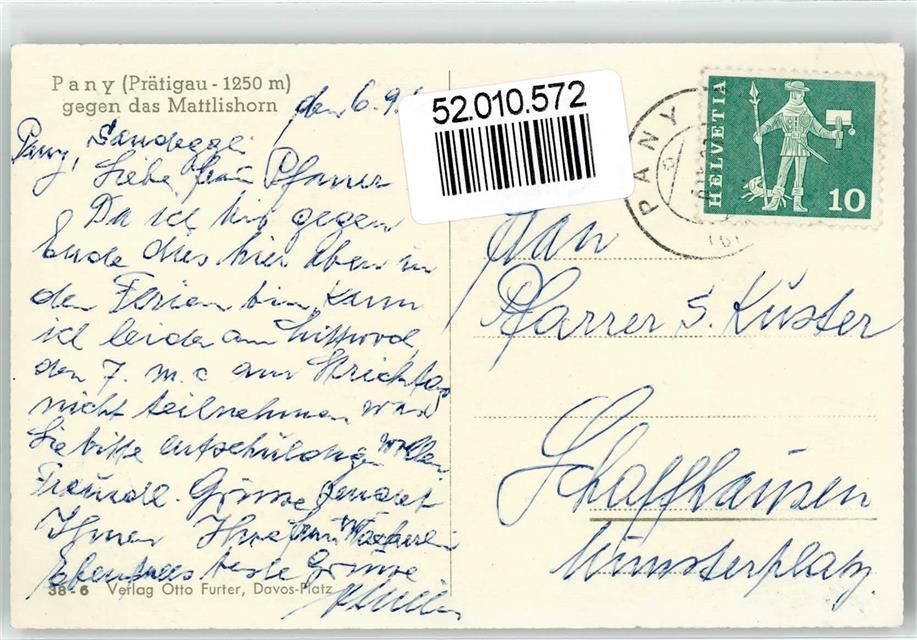 Pany (Prätigau - 1250 m)
gegen das Mattlishorn
den 6. 9.
Pany,
Liebe Frau Pfarrer
Da ich bis gegen
Ende dies hier oben in
den Ferien bin, kann
ich leider am Mittwoch,
den 7. m. c am Stricktag
nicht teilnehmen was
Sie bitte entschuldigen wollen
Freundl. Grüsse sendet
Ihnen Ihre Frau
Ebenfalls beste Grüsse
38-6 Verlag Otto Furter, Davos-Platz
52.010.572
PANY
HELVETIA
10
Pfarrer S. Küster
Schaffhausen
Münsterplatz.